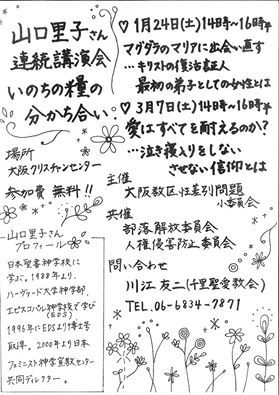 山口里子さん
連続講演会
いのちの糧の
分かち合い
場所
大阪クリスチャンセンター
参加費 無料!!
山口里子さん
プロフィール
日本聖書神学校に
学ぶ。1988年より、
ハーヴァード大学神学部、
エピスコパル神学校で学び
(EDS)
1996年にEDSより博士号
取得。2000年より日本
フェミニスト神学・宣教センター
共同ディレクター。
♡1月24日(土)14時~16時半
マグダラのマリアに出会い直す
…キリストの復活証人
最初の弟子としての女性とは
♡3月7日(土)14時~16時半
愛はすべてを耐えるのか?
…泣き寝入りをしない
させない信仰とは
主催
大阪教区性差別問題
小委員会
共催
部落解放委員会
人権侵害防止委員会
問い合わせ
川江友二(千里聖愛教会)
TEL.06-6834-7871